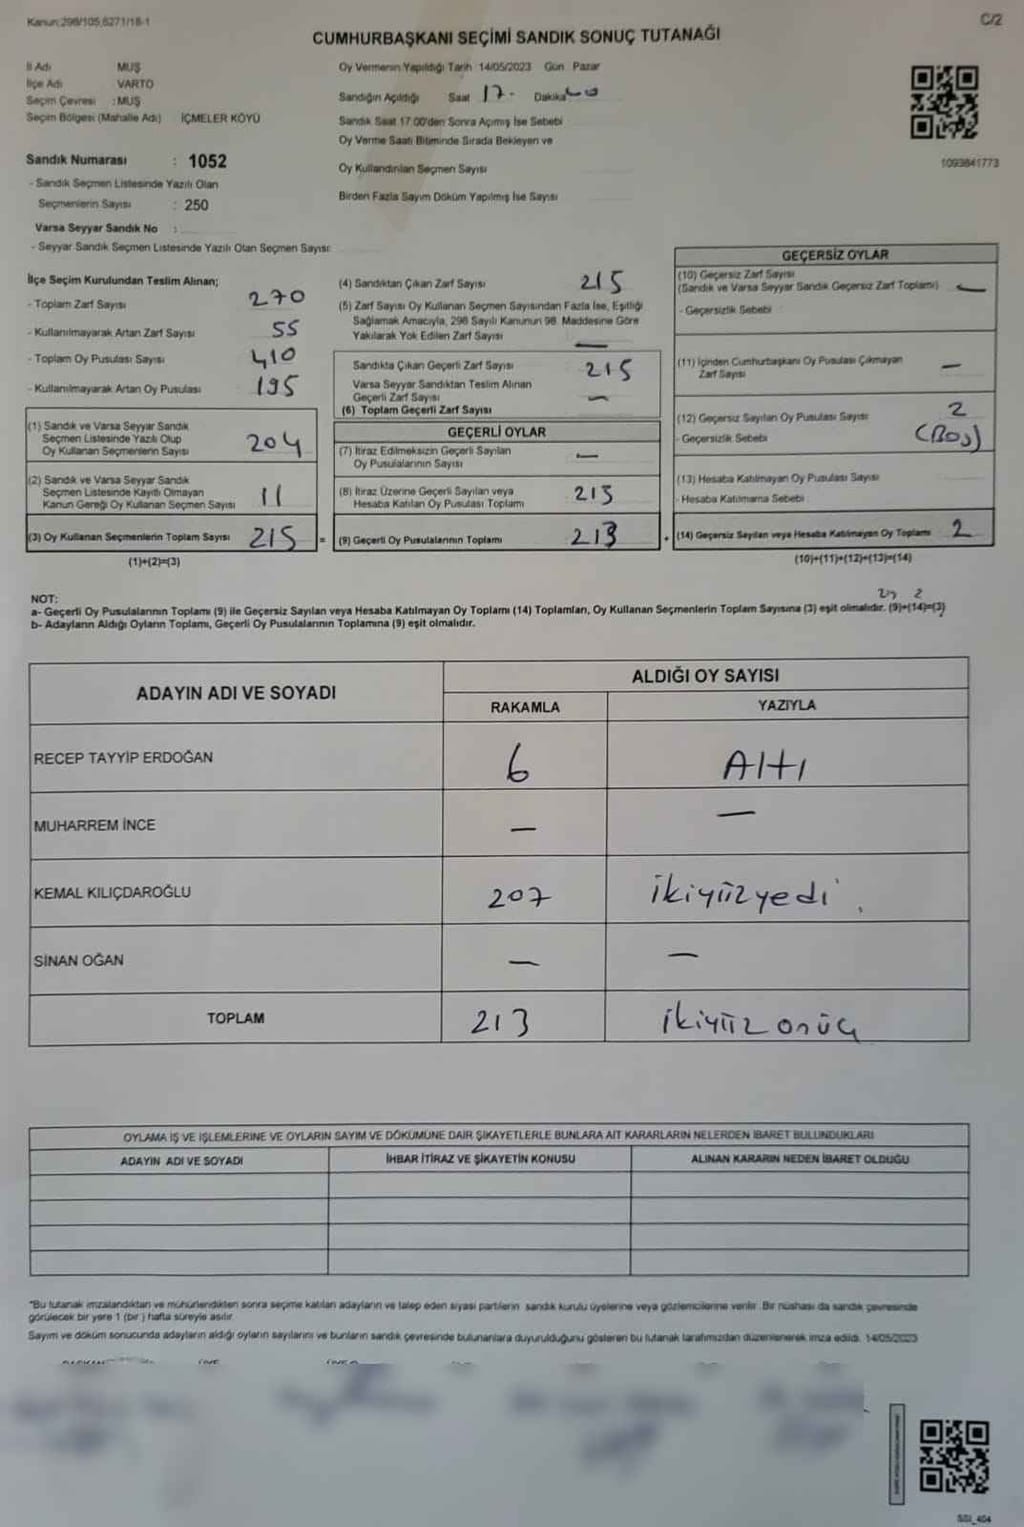 Kanun:298/105,6271/18-1
C/2
CUMHURBAŞKANI SEÇİMİ SANDIK SONUÇ TUTANAĞI
İl Adı MUŞ
İlçe Adı VARTO
Seçim Çevresi : MUŞ
Seçim Bölgesi (Mahalle Adı) İÇMELER KÖYÜ
Sandık Numarası : 1052
- Sandık Seçmen Listesinde Yazılı Olan
Seçmenlerin Sayısı : 250
Varsa Seyyar Sandık No :
- Seyyar Sandık Seçmen Listesinde Yazılı Olan Seçmen Sayısı:
Oy Vermenin Yapıldığı Tarih 14/05/2023 Gün Pazar
Sandığın Açıldığı Saat 17- Dakika
Sandık Saat 17.00'den Sonra Açılmış İse Sebebi
Oy Verme Saati Bitiminde Sırada Bekleyen ve
Oy Kullandırılan Seçmen Sayısı
Birden Fazla Sayım Döküm Yapılmış İse Sayısı
1093841773
İlçe Seçim Kurulundan Teslim Alınan;
- Toplam Zarf Sayısı 270
- Kullanılmayarak Artan Zarf Sayısı 55
- Toplam Oy Pusulası Sayısı 410
- Kullanılmayarak Artan Oy Pusulası 195
(1) Sandık ve Varsa Seyyar Sandık
Seçmen Listesinde Yazılı Olup
Oy Kullanan Seçmenlerin Sayısı 204
(2) Sandık ve Varsa Seyyar Sandık
Seçmen Listesinde Kayıtlı Olmayan
Kanun Gereği Oy Kullanan Seçmen Sayısı 11
(3) Oy Kullanan Seçmenlerin Toplam Sayısı 215 =
(1)+(2)=(3)
(4) Sandıktan Çıkan Zarf Sayısı 215
(5) Zarf Sayısı Oy Kullanan Seçmen Sayısından Fazla İse, Eşitliği
Sağlamak Amacıyla, 298 Sayılı Kanunun 98. Maddesine Göre
Yakılarak Yok Edilen Zarf Sayısı —
Sandıkta Çıkan Geçerli Zarf Sayısı 215
Varsa Seyyar Sandıktan Teslim Alınan
Geçerli Zarf Sayısı —
(6) Toplam Geçerli Zarf Sayısı
GEÇERLİ OYLAR
(7) İtiraz Edilmeksizin Geçerli Sayılan
Oy Pusulalarının Sayısı —
(8) İtiraz Üzerine Geçerli Sayılan veya
Hesaba Katılan Oy Pusulası Toplamı 213
(9) Geçerli Oy Pusulalarının Toplamı 213 +
GEÇERSİZ OYLAR
(10) Geçersiz Zarf Sayısı
(Sandık ve Varsa Seyyar Sandık Geçersiz Zarf Toplamı) —
- Geçersizlik Sebebi
(11) İçinden Cumhurbaşkanı Oy Pusulası Çıkmayan
Zarf Sayısı —
(12) Geçersiz Sayılan Oy Pusulası Sayısı 2
- Geçersizlik Sebebi (Boş)
(13) Hesaba Katılmayan Oy Pusulası Sayısı
- Hesaba Katılmama Sebebi
(14) Geçersiz Sayılan veya Hesaba Katılmayan Oy Toplamı 2
(10)+(11)+(12)+(13)=(14)
NOT:
213 2
a- Geçerli Oy Pusulalarının Toplamı (9) ile Geçersiz Sayılan veya Hesaba Katılmayan Oy Toplamı (14) Toplamları, Oy Kullanan Seçmenlerin Toplam Sayısına (3) eşit olmalıdır. (9)+(14)=(3)
b- Adayların Aldığı Oyların Toplamı, Geçerli Oy Pusulalarının Toplamına (9) eşit olmalıdır.
ADAYIN ADI VE SOYADI
ALDIĞI OY SAYISI
RAKAMLA YAZIYLA
RECEP TAYYİP ERDOĞAN 6 Altı
MUHARREM İNCE — —
KEMAL KILIÇDAROĞLU 207 ikiyüzyedi
SİNAN OĞAN — —
TOPLAM 213 ikiyüz onüç
OYLAMA İŞ VE İŞLEMLERİNE VE OYLARIN SAYIM VE DÖKÜMÜNE DAİR ŞİKAYETLERLE BUNLARA AİT KARARLARIN NELERDEN İBARET BULUNDUKLARI
ADAYIN ADI VE SOYADI İHBAR İTİRAZ VE ŞİKAYETİN KONUSU ALINAN KARARIN NEDEN İBARET OLDUĞU
"Bu tutanak imzalandıktan ve mühürlendikten sonra seçime katılan adayların ve talep eden siyasi partilerin sandık kurulu üyelerine veya gözlemcilerine verilir. Bir nüshası da sandık çevresinde
görülecek bir yere 1 (bir) hafta süreyle asılır.
Sayım ve döküm sonucunda adayların aldığı oyların sayılarını ve bunların sandık çevresinde bulunanlara duyurulduğunu gösteren bu tutanak tarafımızdan düzenlenerek imza edildi. 14/05/2023